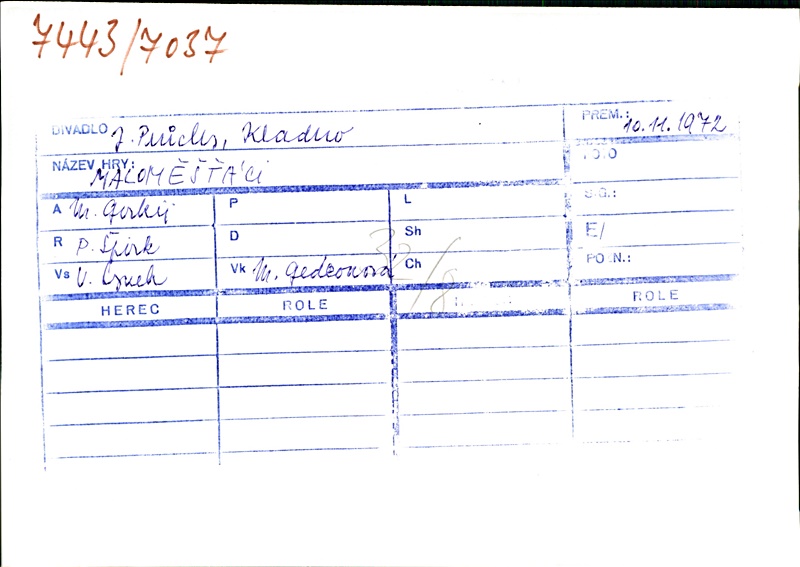 7443/7037
DIVADLO J. Průchy, Kladno PREM.: 10.11.1972
NÁZEV HRY: MALOMĚŠŤÁCI FOTO
A M. Gorkij P L S.G.:
R P. Špirk D Sh E/
Vs V. Vk M. Gedeonová Ch POZN.:
HEREC ROLE ROLE
32/8